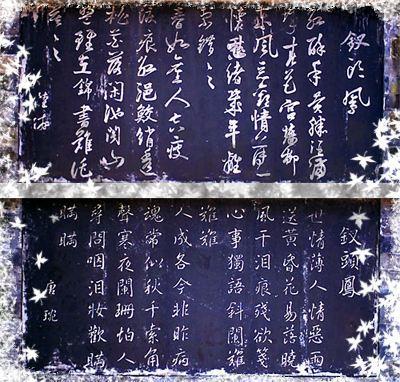 釵頭鳳
紅酥手黄縢酒滿
城春色宮牆柳
東風惡歡情薄一
懷愁緒幾年離
索錯〻〻
春如舊人空瘦
淚痕紅浥鮫綃透
桃花落閑池閣山
盟雖在錦書難托
莫〻〻
陸游
釵頭鳳
世情薄人情惡雨
送黄昏花易落曉
風干泪痕殘欲箋
心事獨語斜闌難
難難
人成各今非昨病
魂常似秋千索角
聲寒夜闌珊怕人
尋問咽泪妝歡瞞
瞞瞞
唐琬